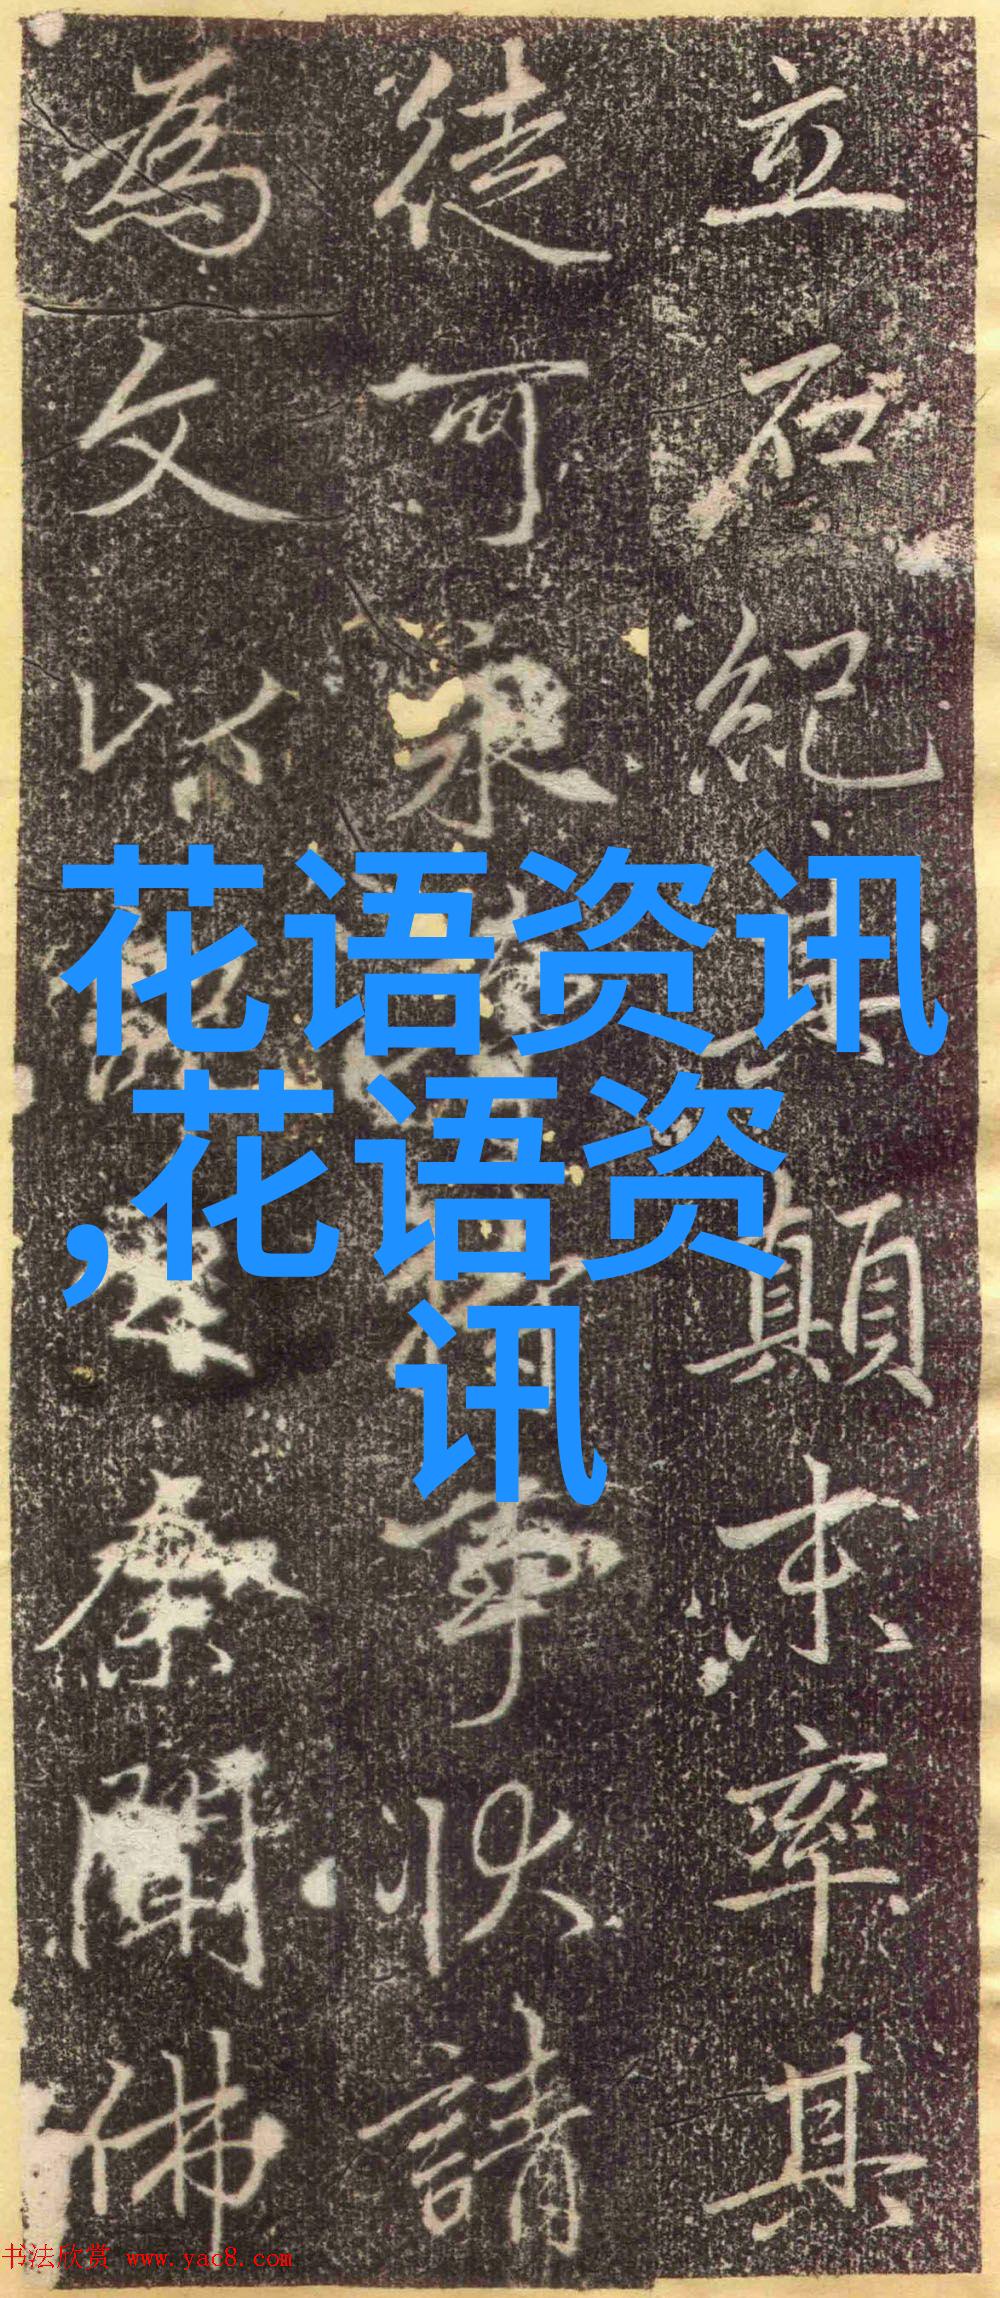 立石紀其顛末率其
徒可永
事状請
為文以
秦聞佛
花语资讯
,花语资
讯
书法欣赏 www.yac8.com